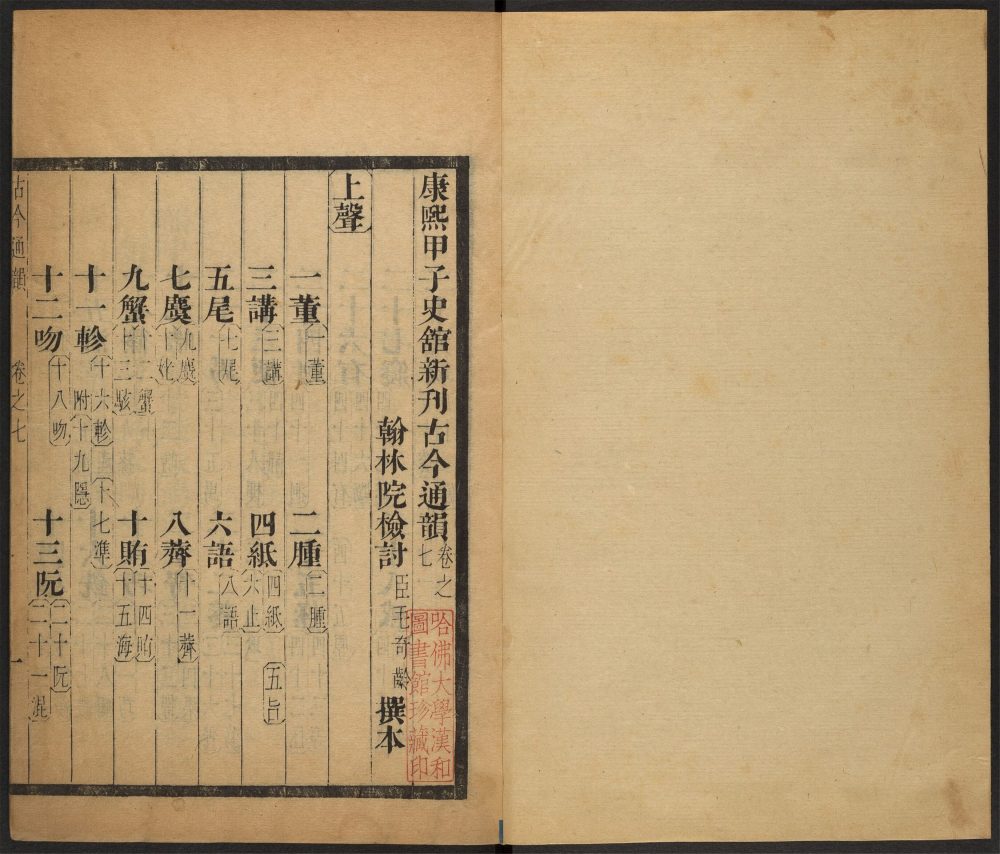 康熙甲子史館新刊古今通韻卷之七
翰林院檢討臣毛奇齡撰本
上聲
一董 一董 二腫 二腫
三講 三講 四紙 四紙 五旨 六止
五尾 七尾 六語 八語
七麌 九麌 十姥 八薺 十一薺
九蟹 十二蟹 十三駭 十賄 十四賄 十五海
十一軫 十六軫 十七準 附十九隱
十二吻 十八吻 十三阮 二十阮 二十一混
古今通韻 卷之七 一
哈佛大學漢和
圖書館珍藏印